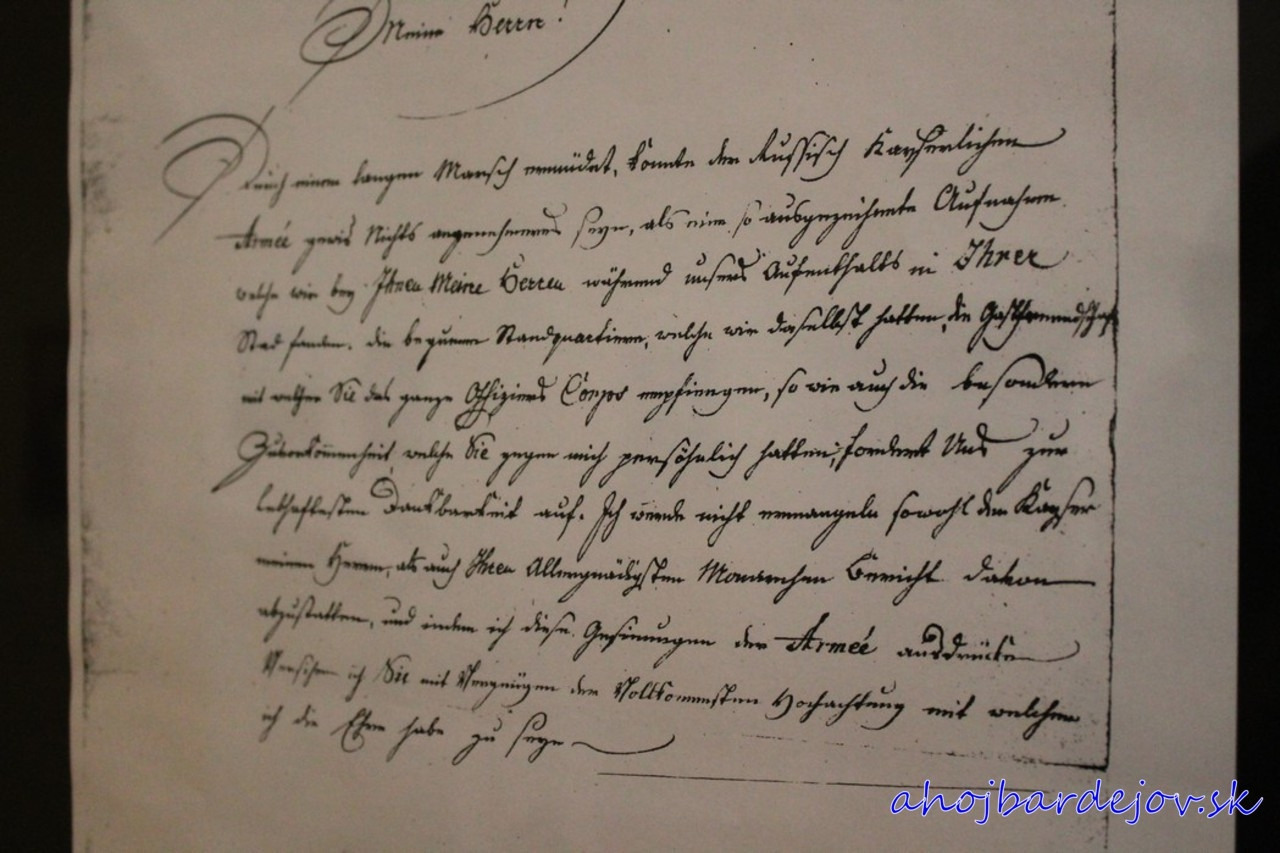 Meine Herrn!
Durch einen langen Marsch ermüdet, konnte der Russisch Kayserlichen
Armée gewis Nichts angenehmeres seyn, als eine so ausgezeichnete Aufnahme
welche wir bey Ihnen Meine Herren während unsers Aufenthalts in Ihrer
Stad fanden. die bequeme Standquartiere, welche wir daselbst hatten, die Gastfreundschaft
mit welcher Sie das ganze Offiziers Corps empfiengen, so wie auch die besondere
Zuvorkommenheit welche Sie gegen mich persöhnlich hatten, fordert Uns zur
lebhaftesten Dankbarkeit auf. Ich werde nicht ermangeln sowohl dem Kayser
meinem Herrn, als auch Ihren Allergnädigsten Monarchen Bericht davon
abzustatten, und indem ich diese Gesinnungen der Armée ausdrücke
Versichere ich Sie mit Vergnügen der Vollkommensten Hochachtung mit welcher
ich die Ehre habe zu seyn
ahojbardejov.sk